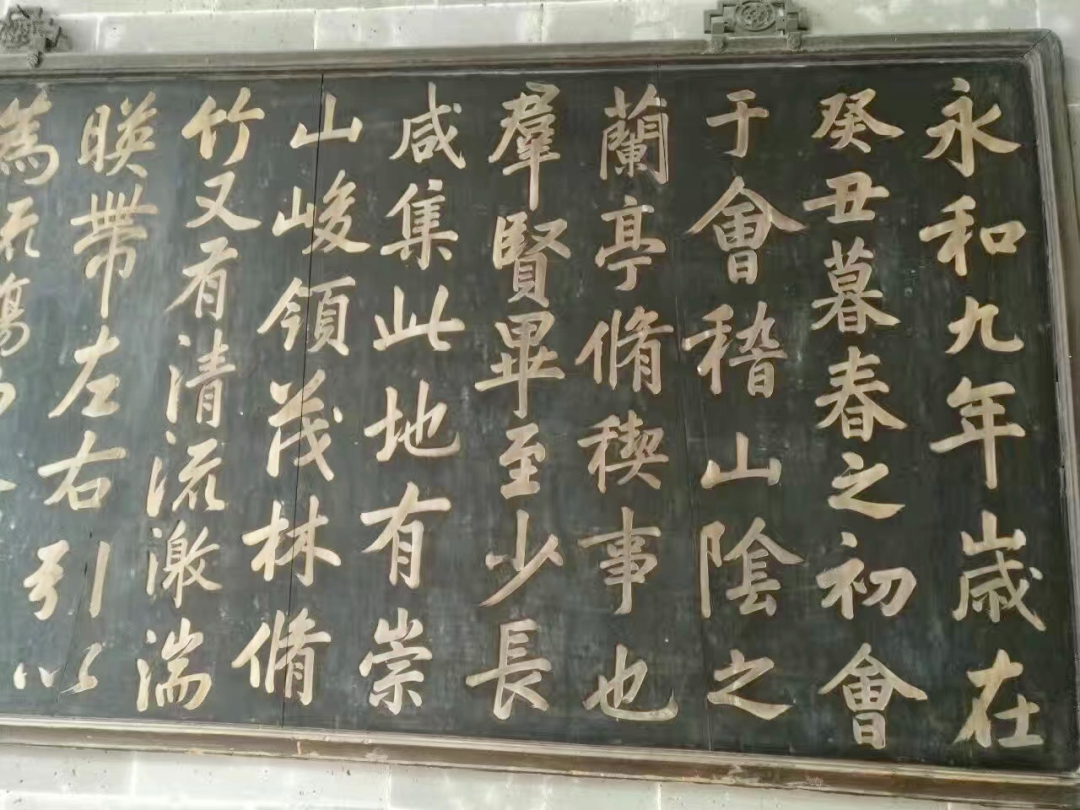 永和九年歲在
癸丑暮春之初會
于會稽山陰之
蘭亭脩稧事也
羣賢畢至少長
咸集此地有崇
山峻領茂林脩
竹又有清流激湍
暎帶左右引以
為流觴